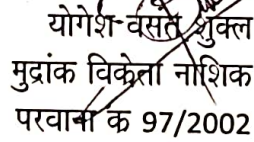 योगेश-वसंत शुक्ल
मुद्रांक विक्रेता नाशिक
परवाना क 97/2002